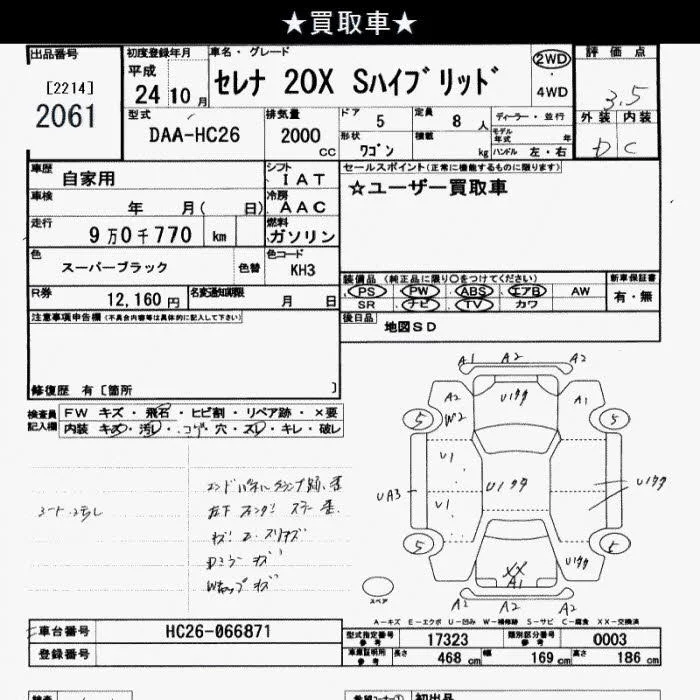 ★買取車★
出品番号
[2214]
2061
初度登録年月
平成
24 10 月
車名・グレード
セレナ 20X Sハイブリッド
2WD
4WD
評価点
3.5
外装 内装
D C
型式
DAA-HC26
排気量
2000
cc
ドア
5
定員
8 人
ディーラー・並行
形状
ワゴン
積載
kg
モデル年式 年
ハンドル 左・右
車歴
自家用
シフト
IAT
車検
年 月( 日)
冷房
AAC
走行
9万0千770 km
燃料
ガソリン
色
スーパーブラック
色替
色コード
KH3
R券
12,160 円
名変通知期限
月 日
セールスポイント(正常に機能するものに限ります)
☆ユーザー買取車
装備品(純正品に限り○をつけてください)
新車保証書
PS PW ABS エアB AW
SR ナビ TV カワ
有・無
後日品
地図SD
注意事項申告欄(不具合内容等は具体的に記入して下さい)
修復歴 有[箇所 ]
検査員
記入欄
FW キズ・飛石・ヒビ割・リペア跡・×要
内装 キズ・汚レ・コゲ・穴・スレ・キレ・破レ
A1 A2 A2
A2 U1タタ A1
5 W2 5
U1
UA3 U1タタ U1タタ
U1
5 5
XX U1タタ
A1
A2 A2 A2
スペア
A-キズ E-エクボ U-凹み W-補修跡 S-サビ C-腐食 XX-交換済
車台番号
HC26-066871
登録番号
型式指定番号
参考
17323
類別区分番号
参考
0003
車庫証明用
参考
長さ
468 cm
幅
169 cm
高さ
186 cm
初出品